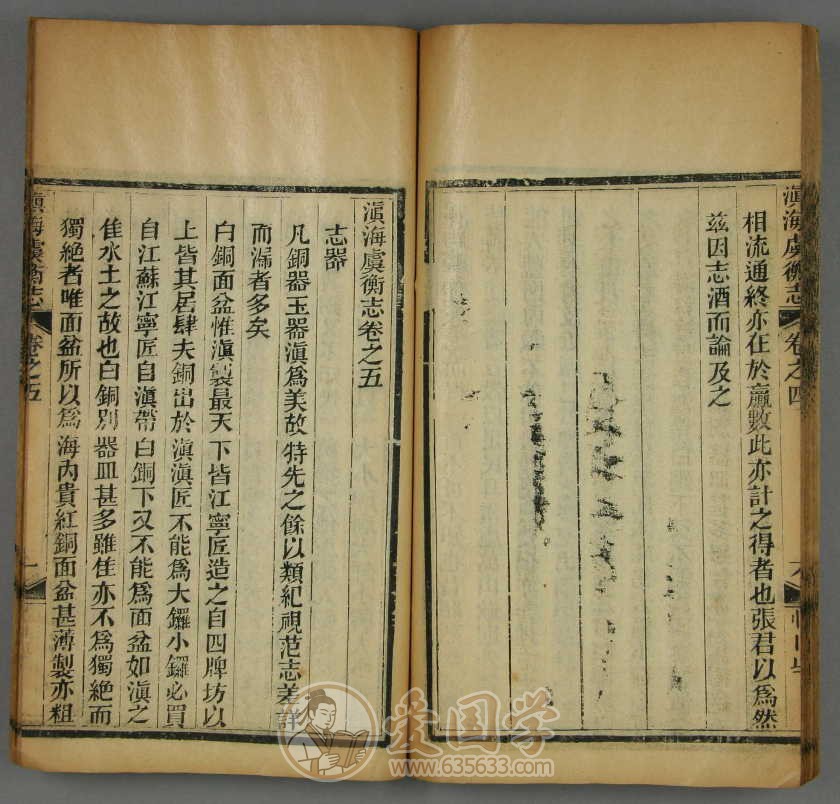 滇海虞衡志 卷之四 六
相流通終亦在於贏數此亦計之得者也張君以爲然
茲因志酒而論及之
滇海虞衡志卷之五
志器
凡銅器玉器滇爲美故特先之餘以類紀視范志差詳
而漏者多矣
白銅面盆惟滇製最天下皆江寧匠造之自四牌坊以
上皆其居肆夫銅出於滇滇匠不能爲大鑼小鑼必買
自江蘇江寧匠自滇帶白銅下又不能爲面盆如滇之
佳水土之故也白銅別器皿甚多雖佳亦不爲獨絕而
獨絕者唯面盆所以爲海內貴紅銅面盆甚薄製亦粗
滇海虞衡志 卷之五 一
爱国学
www.635633.com